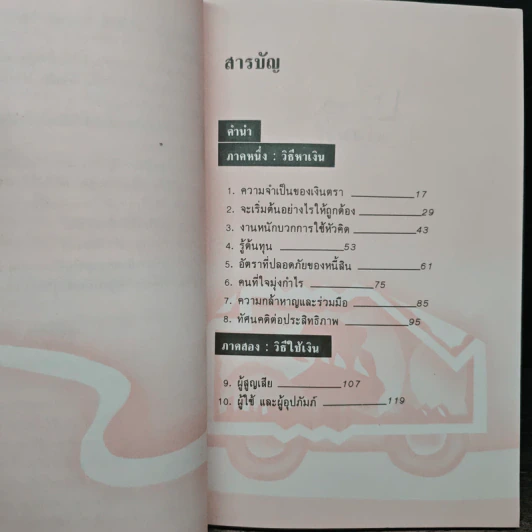 สารบัญ
คำนำ
ภาคหนึ่ง : วิธีหาเงิน
1. ความจำเป็นของเงินตรา 17
2. จะเริ่มต้นอย่างไรให้ถูกต้อง 29
3. งานหนักบวกการใช้หัวคิด 43
4. รู้ต้นทุน 53
5. อัตราที่ปลอดภัยของหนี้สิน 61
6. คนที่ใจมุ่งกำไร 75
7. ความกล้าหาญและร่วมมือ 85
8. ทัศนคติต่อประสิทธิภาพ 95
ภาคสอง : วิธีใช้เงิน
9. ผู้สูญเสีย 107
10. ผู้ใช้ และผู้อุปภัมภ์ 119